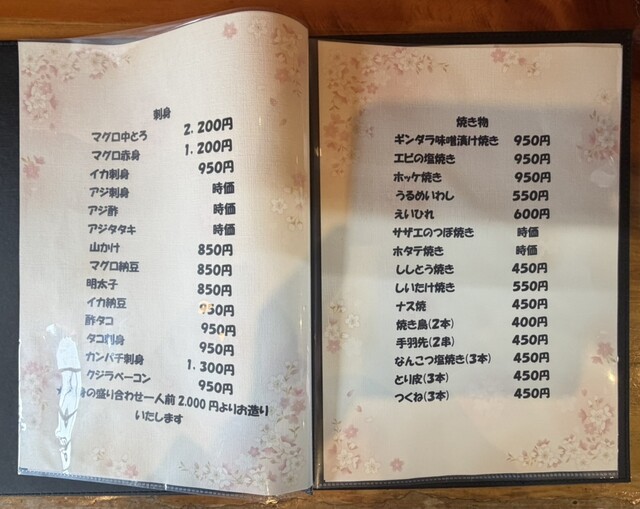 刺身
マグロ中とろ 2.200円
マグロ赤身 1.200円
イカ刺身 950円
アジ刺身 時価
アジ酢 時価
アジタタキ 時価
山かけ 850円
マグロ納豆 850円
明太子 850円
イカ納豆 950円
酢タコ 950円
タコ刺身 950円
カンパチ刺身 1.300円
クジラベーコン 950円
の盛り合わせ一人前2.000円よりお造り
いたします
焼き物
ギンダラ味噌漬け焼き 950円
エビの塩焼き 950円
ホッケ焼き 950円
うるめいわし 550円
えいひれ 600円
サザエのつぼ焼き 時価
ホタテ焼き 時価
ししとう焼き 450円
しいたけ焼き 550円
ナス焼 450円
焼き鳥(2本) 400円
手羽先(2串) 450円
なんこつ塩焼き(3本) 450円
とり皮(3本) 450円
つくね(3本) 450円